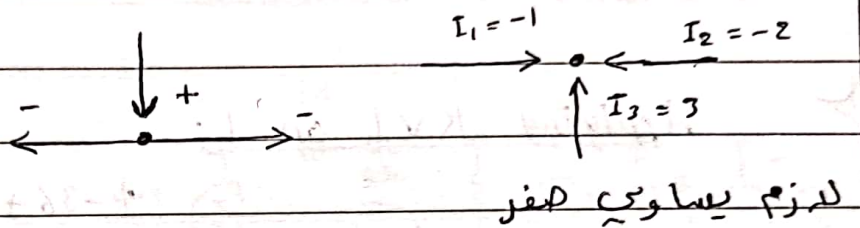 I₁ = -1
I₂ = -2
- + -
I₃ = 3
لازم يساوي صفر